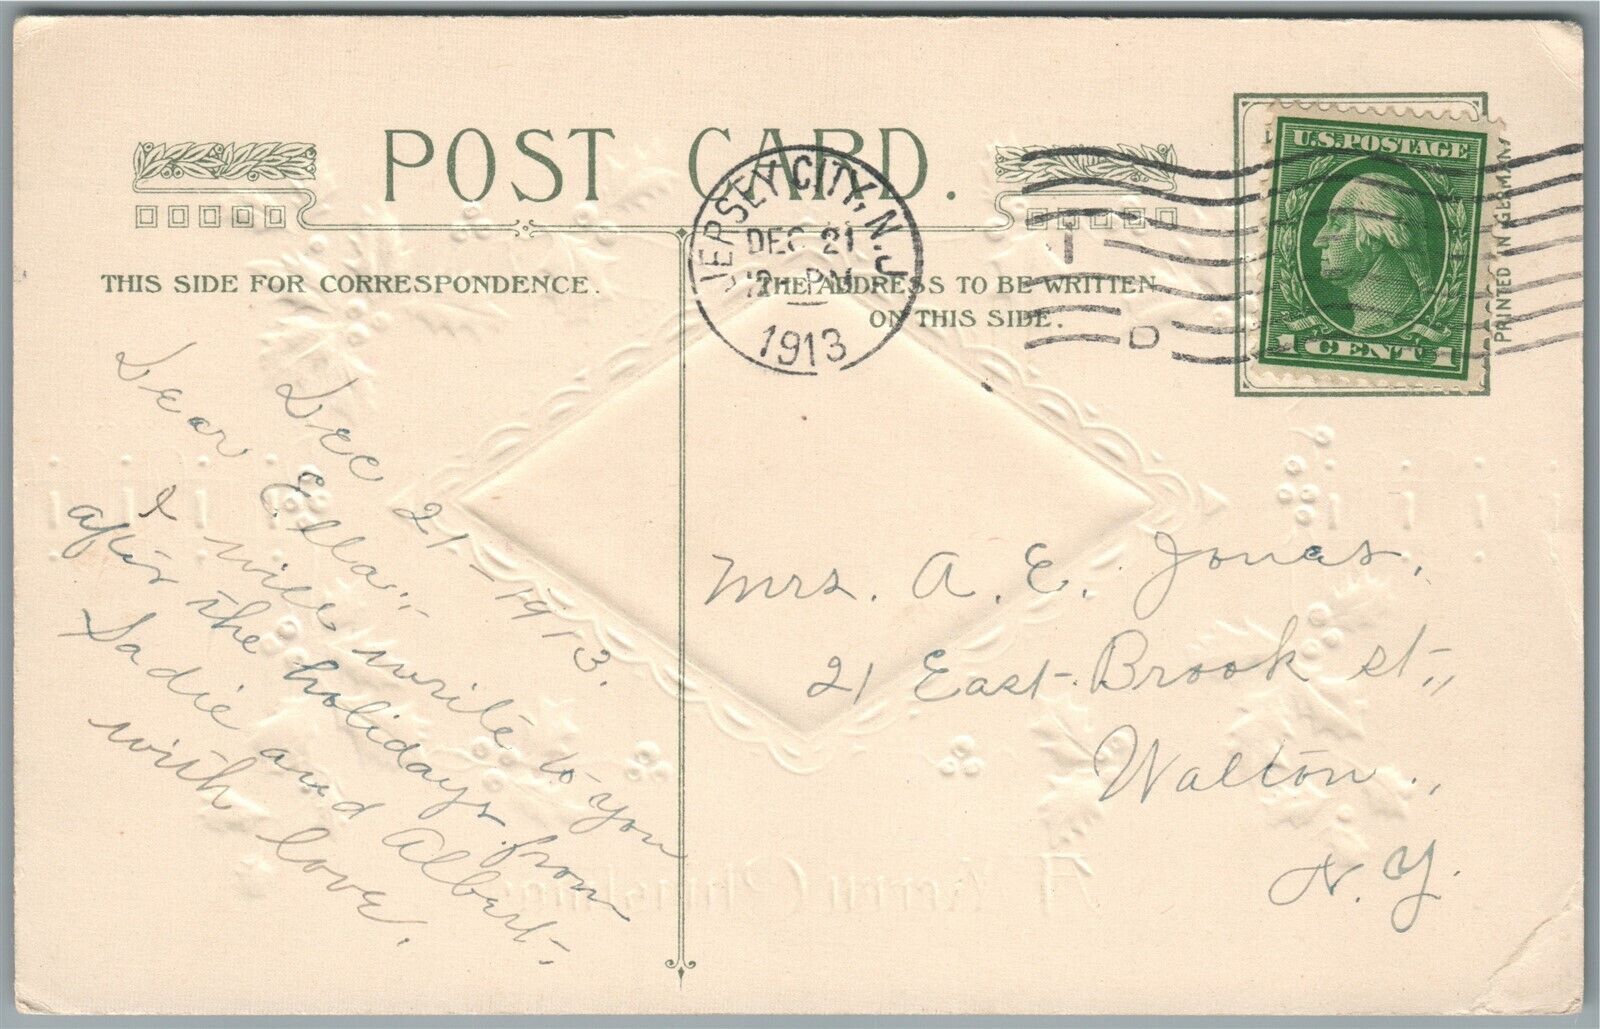 POST CARD.
THIS SIDE FOR CORRESPONDENCE.
THE ADDRESS TO BE WRITTEN
ON THIS SIDE.
JERSEY CITY, N.J.
DEC 21
12 PM
1913
1
D
U.S. POSTAGE
1 CENT 1
PRINTED IN GERMANY
Dec 21-1913.
Dear Ella.,-
I will write to you
after the holidays. from
Sadie and Albert-,
with love.
Mrs. A. E. Jonas.
21 East-Brook st.,,
Walton.,
N. Y.
A Merry Christmas